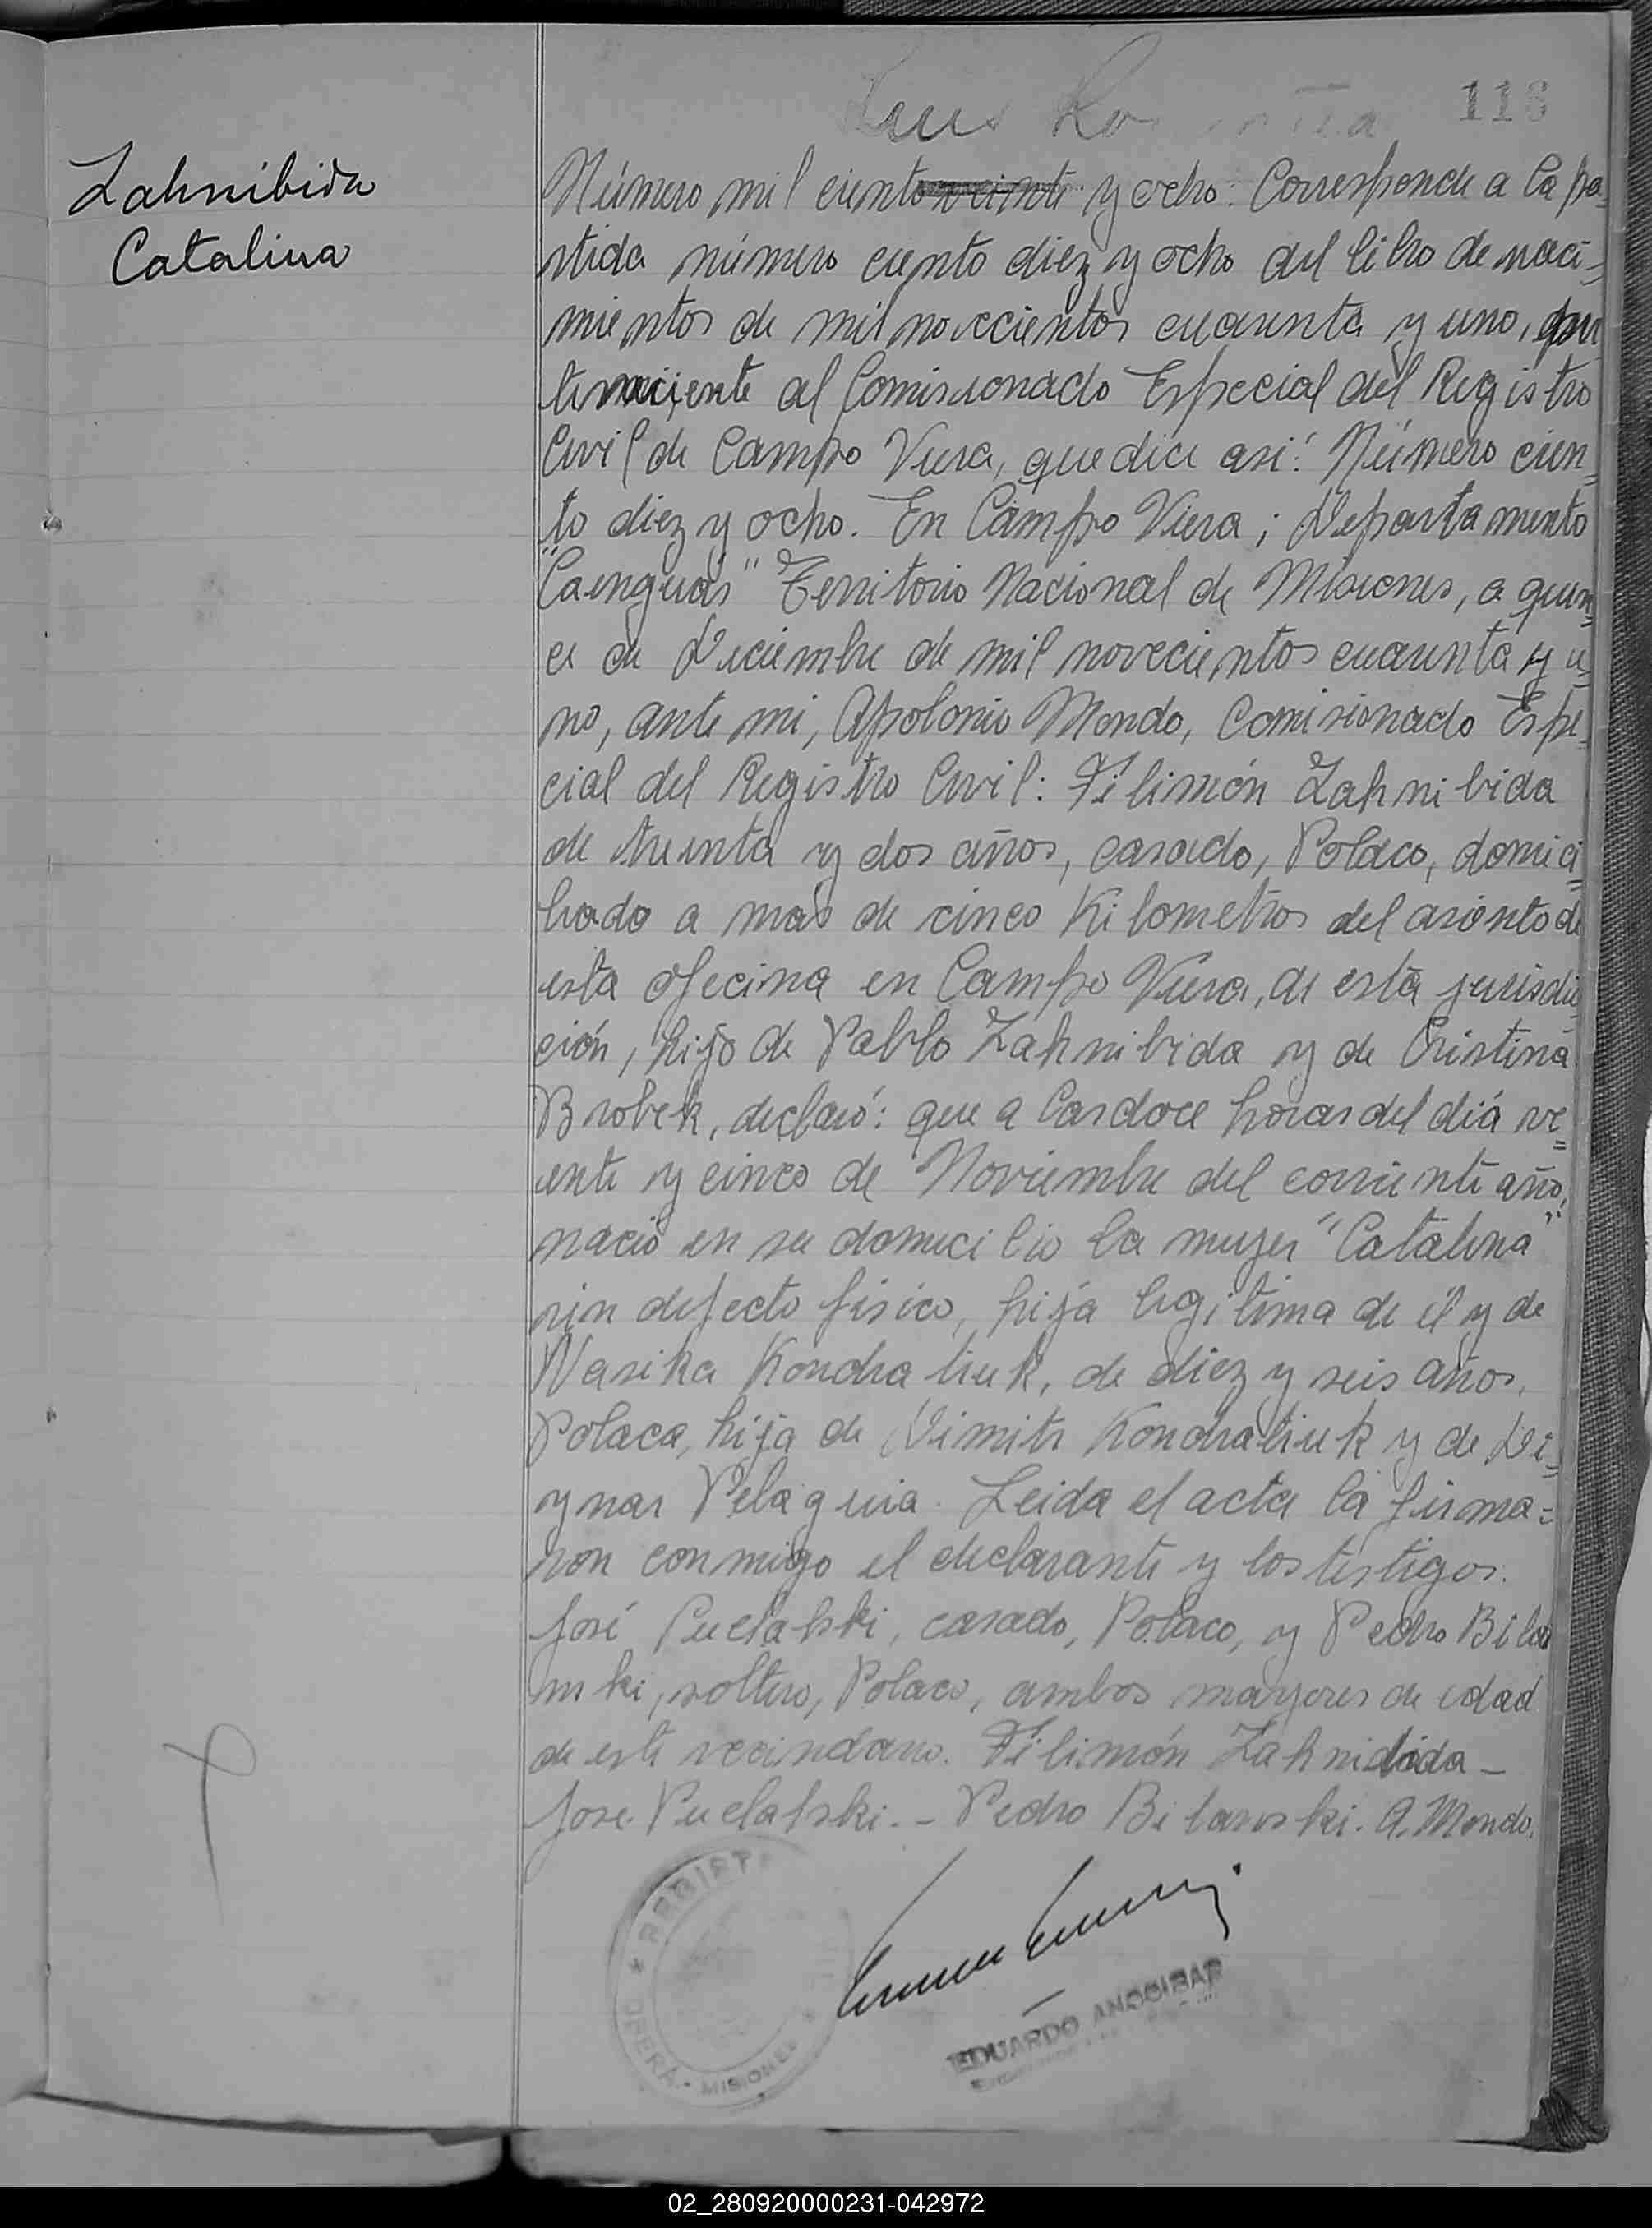 118
Zahnibida
Catalina
Número mil ciento y ocho: Corresponde a la pa-
rtida número ciento diez y ocho del libro de naci-
mientos de mil novecientos cuarenta y uno, per
teneciente al Comisionado Especial del Registro
Civil de Campo Viera, que dice asi: Número cien-
to diez y ocho. En Campo Viera; Departamento
"Cainguás" Territorio Nacional de Misiones, a quin-
ce de Diciembre de mil novecientos cuarenta y u-
no, ante mi, Apolonio Mondo, Comisionado Espe-
cial del Registro Civil: Filimón Zahnibida
de treinta y dos años, casado, Polaco, domici-
liado a mas de cinco Kilometros del asiento de
esta oficina en Campo Viera, de esta jurisdic-
ción, hijo de Pablo Zahnibida y de Cristina
Brobek, declaró: que a las doce horas del diá ve-
inte y cinco de Noviembre del corriente año,
nacio en su domicilio la mujer "Catalina"
sin defecto fisico, hija legitima de él y de
Wasika Kondratiuk, de diez y seis años,
Polaca, hija de Dimitr Kondratiuk y de Di-
ynar Pelaguia. Leida el acta la firma-
ron conmigo el declarante y los testigos:
José Puclatski, casado, Polaco, y Pedro Bilar
nski, soltero, Polaco, ambos mayores de edad
de este vecindario. Filimón Zahnidida -
José Puclatski. - Pedro Bilanski. A. Mondo.
OBERÁ - MISIONES
EDUARDO ANSCIBAR
02_280920000231-042972